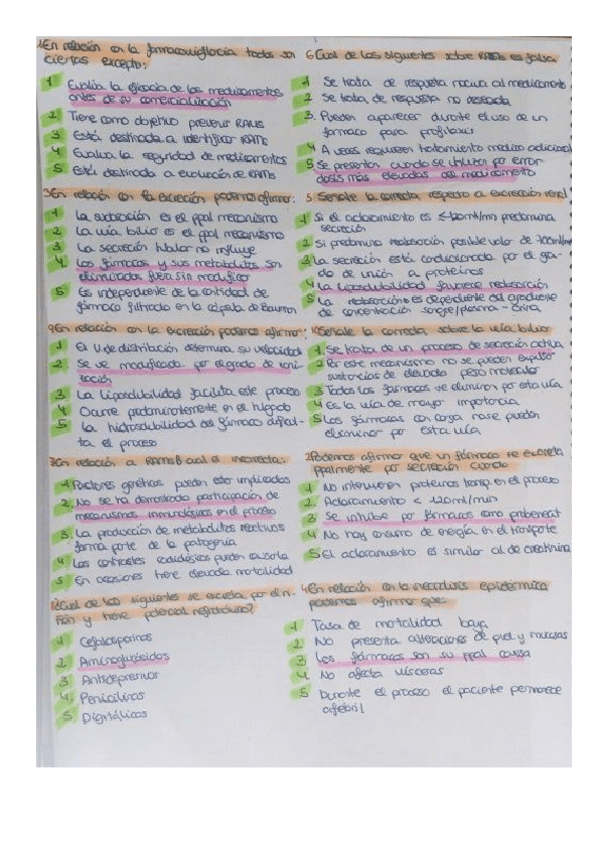 1En relación con la farmacovigilancia todas son
ciertas excepto:
1 Evalúa la eficacia de los medicamentos
antes de su comercialización
2 Tiene como objetivo prevenir RAMs
3 Está destinada a identificar RAMs
4 Evalua la seguridad de medicamentos
5 Está destinada a evaluación de RAMs
3En relación con la excreción podemos afirmar:
1 La es el ppal mecanismo
2 La vía biliar es el ppal mecanismo
3 La secreción tubular no influye
4 Los fármacos y sus metabolitos son
eliminados fuera sin modificar
5 Es independiente de la cantidad de
fármaco filtrado en la cápsula de Bowman
9En relación con la excreción podemos afirmar:
1 El V. de distribución determina su velocidad
2 Se ve modificada por el grado de ioni-
zación
3 La liposolubilidad facilita este proceso
4 Ocurre predominantemente en el hígado
5 La hidrosolubilidad del fármaco dificul-
ta el proceso
7En relación a RAMsB cual es incorrecta:
1 Factores genéticos pueden estar implicados
2. No se ha demostrado participación de
mecanismos inmunológicos en el proceso
3. La producción de metabolitos reactivos
forma parte de la patogenia
4 Los contrastes radiológicos pueden causarla
5 En ocasiones tiene elevada mortalidad
Cual de los siguientes se excreta por el ri-
ñón y tiene potencial nefrotóxico?
1 Cefalosporinas
2 Aminoglucósidos
3 Antidepresivos
4. Penicilinas
5 Digitálicos
6Cual de los siguientes sobre RAMs es falsa
1 Se trata de respuesta nociva al medicamento
2 Se trata de respuesta no deseada
3. Pueden aparecer durante el uso de un
fármaco para profilaxis
4 A veces requieren tratamiento medico adicional
5 Se presentan cuando se utilizan por error
dosis más elevadas del medicamento
5 Señale la correcta respecto a excreción renal
1 Si el aclaramiento es predomina
secreción
2 Si predomina reabsorción posible valor de
3 La secreción está condicionada por el gra-
do de unión a proteínas
4 La liposolubilidad favorece reabsorción
5 La reabsorción es dependiente del gradiente
de concentración sangre/plasma - orina
Señale la correcta sobre la vía biliar
1. Se trata de un proceso de secreción activa
2 Por este mecanismo no se pueden expulsar
sustancias de elevado peso molecular
3 Todos los fármacos se eliminan por esta vía
4 Es la vía de mayor importancia
5 Los fármacos con carga no se pueden
eliminar por esta vía
2Podemos afirmar que un fármaco se excreta
ppalmente por secreción cuando
1 No intervienen proteínas transp. en el proceso
2 Aclaramiento < 120ml/min
3 Se inhibe por fármacos como probenecit
4 No hay consumo de energía en el transporte
5 El aclaramiento es similar al de creatinina
4En relación con la necrolisis epidérmica
podemos afirmar que:
1 Tasa de mortalidad baja
2 No presenta alteraciones de piel y mucosas
3 Los fármacos son su ppal causa
4 No afecta vísceras
5 Durante el proceso el paciente permanece
afebril